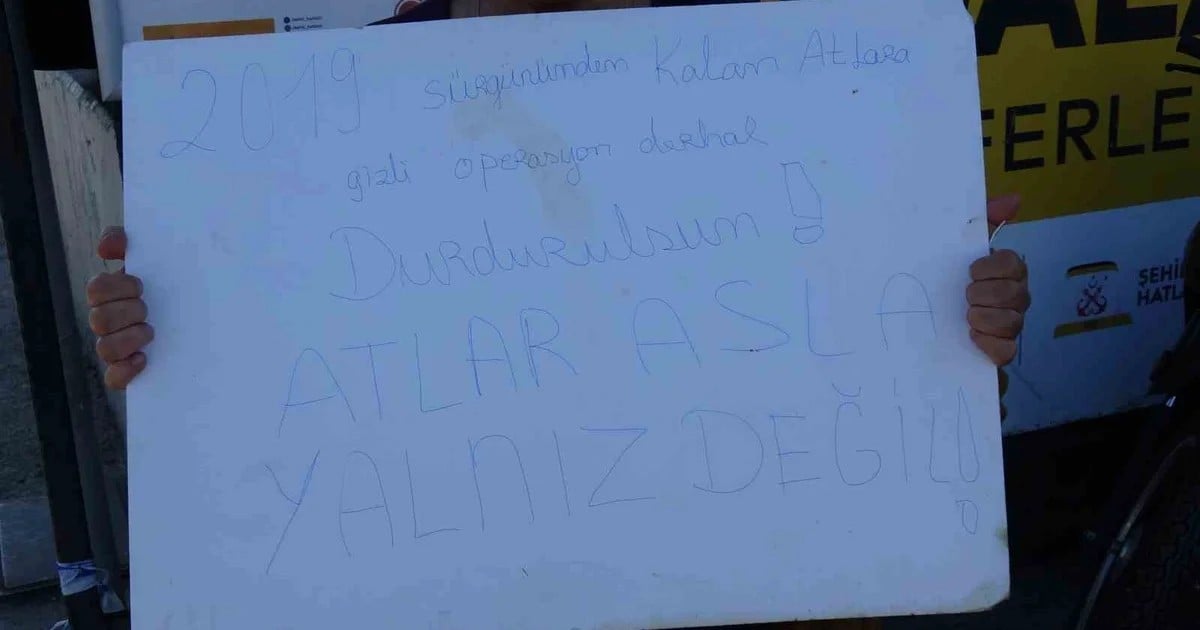 2019 sürgününden Kalan Atlara
gizli operasyon derhal
Durdurulsun!
ATLAR ASLA
YALNIZ DEĞİL!
FERLE
ŞEHİ
HATL